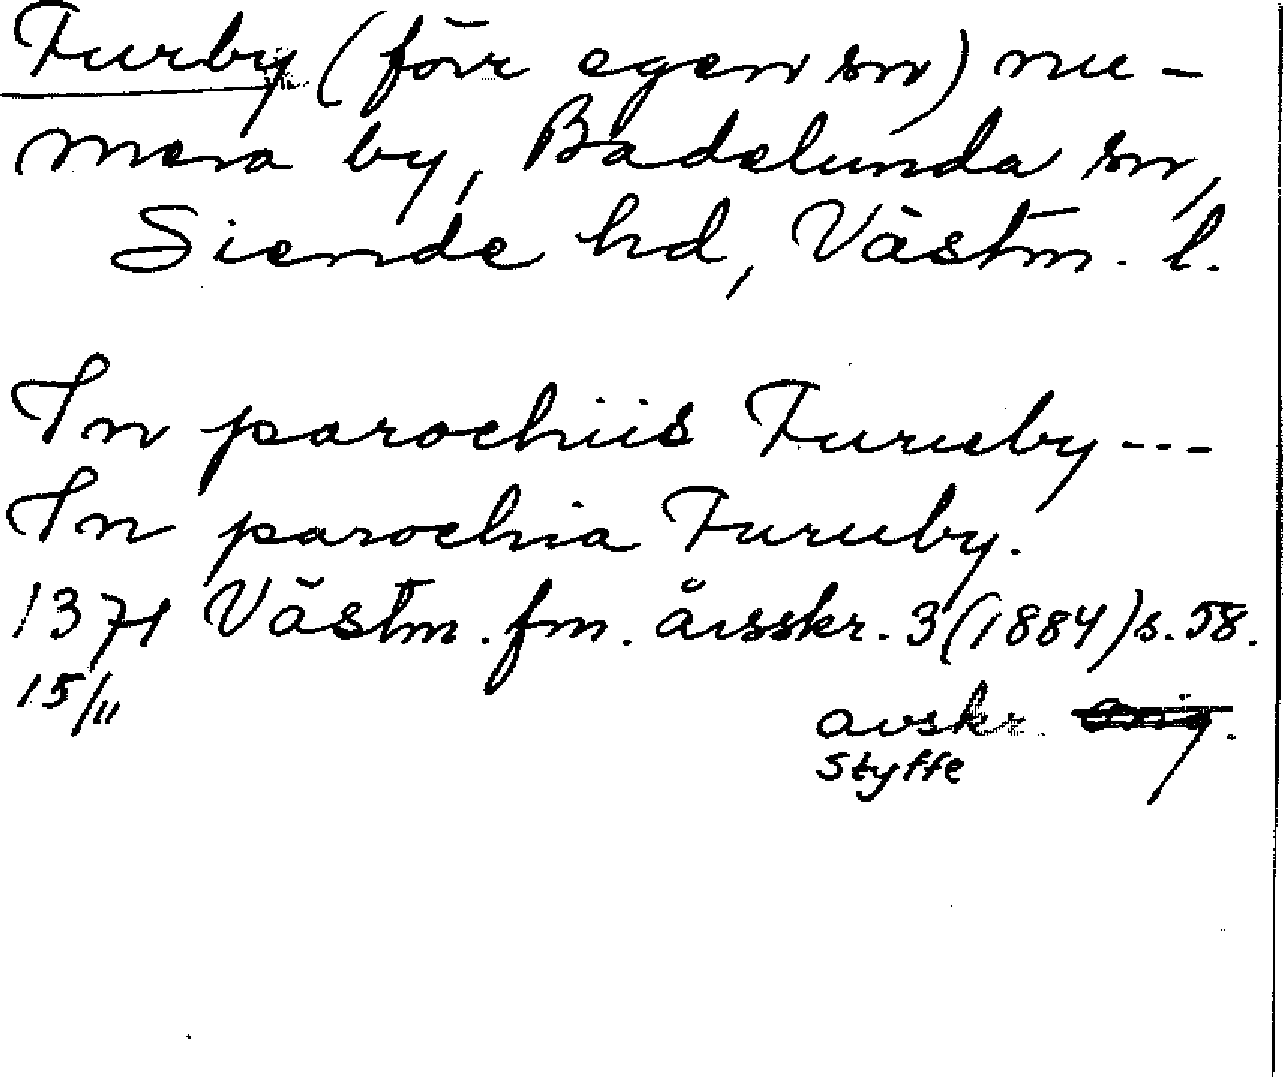 Furby (förr egen sn) nu-
mera by, Badelunda sn,
Siende hd, Västm. l.
In parochiis Furuby ---
In parochia Furuby.
1371 Västm. fm. årsskr. 3 (1884) s. 58.
15/11
avskr. Orig.
Styffe